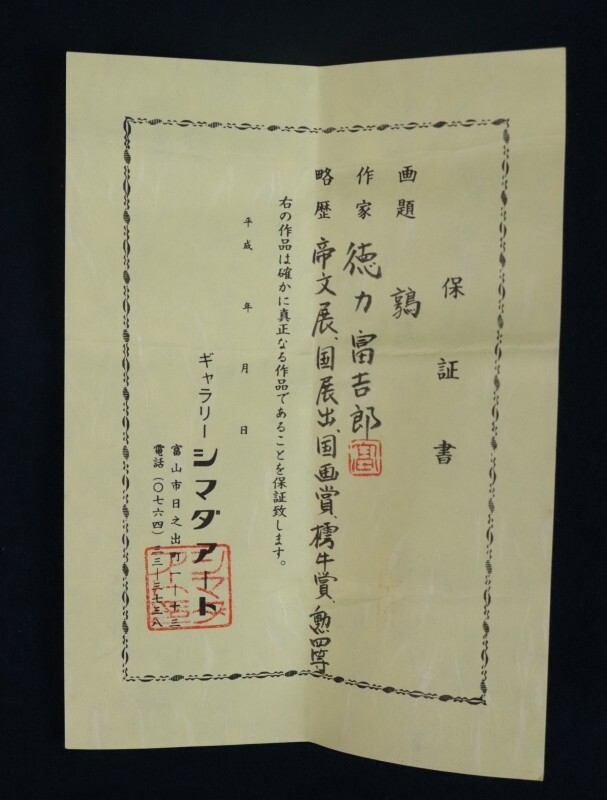 保証書
画題 鶉
作家 徳力富吉郎
略歴 帝文展、国展出、国画賞、樗牛賞、勲四等
右の作品は確かに真正なる作品であることを保証致します。
平成 年 月 日
ギャラリー シマダアート
富山市日之出町一ー十三
電話(〇七六四)三三ー三七三八